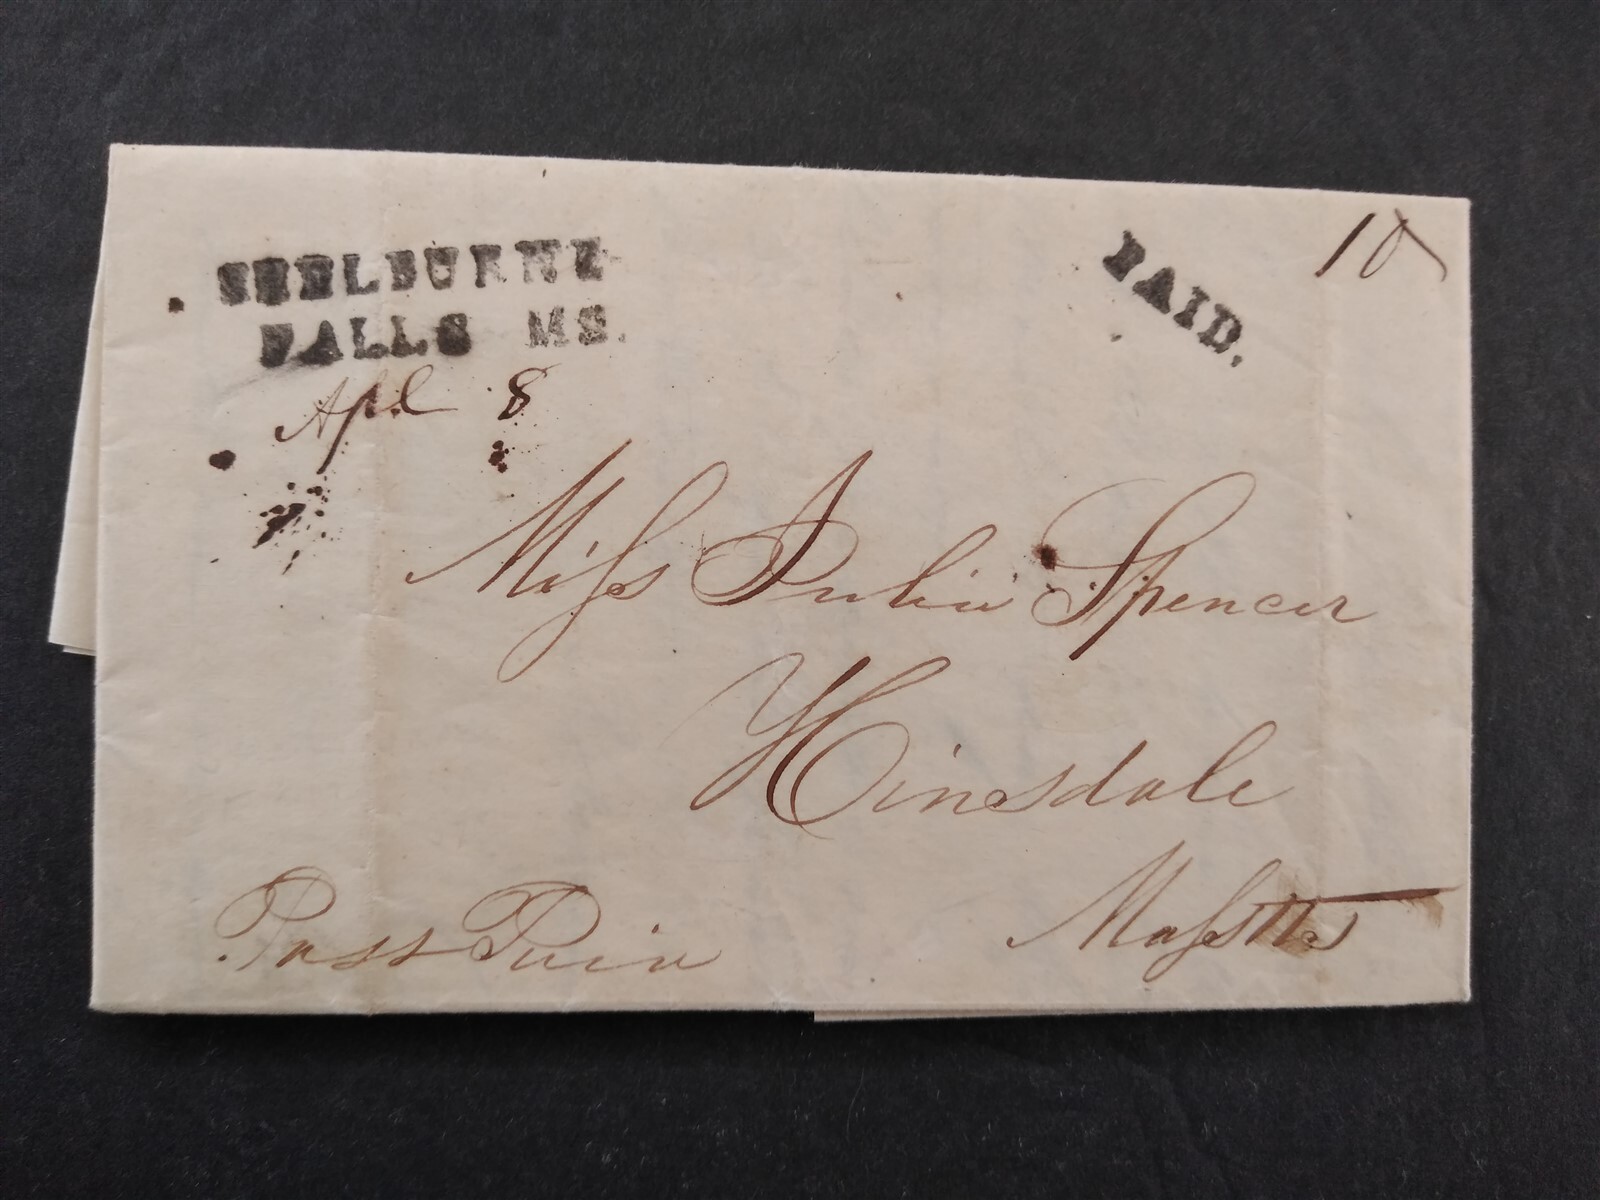 SHELBURNE
FALLS MS.
Apl 8
PAID.
10
Miss Julia Spencer
Hinsdale
Masstts
Post Paid